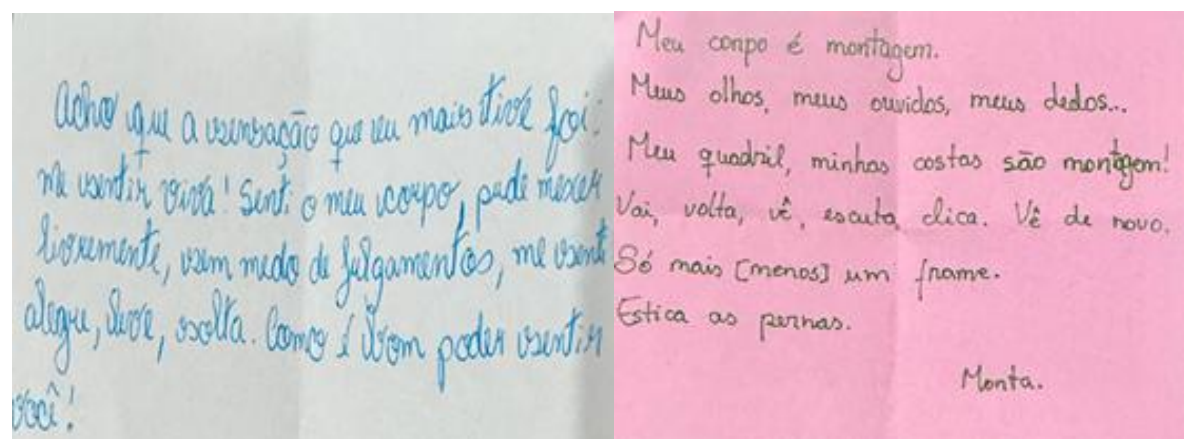 Acho que a sensação que eu mais tive foi:
me sentir viva! Senti o meu corpo, pude mexer
livremente, sem medo de julgamentos, me senti
alegre, leve, solta. Como é bom poder sentir
você!
Meu corpo é montagem.
Meus olhos, meus ouvidos, meus dedos...
Meu quadril, minhas costas são montagem!
Vai, volta, vê, escuta, clica. Vê de novo.
Só mais [menos] um frame.
Estica as pernas.
Monta.